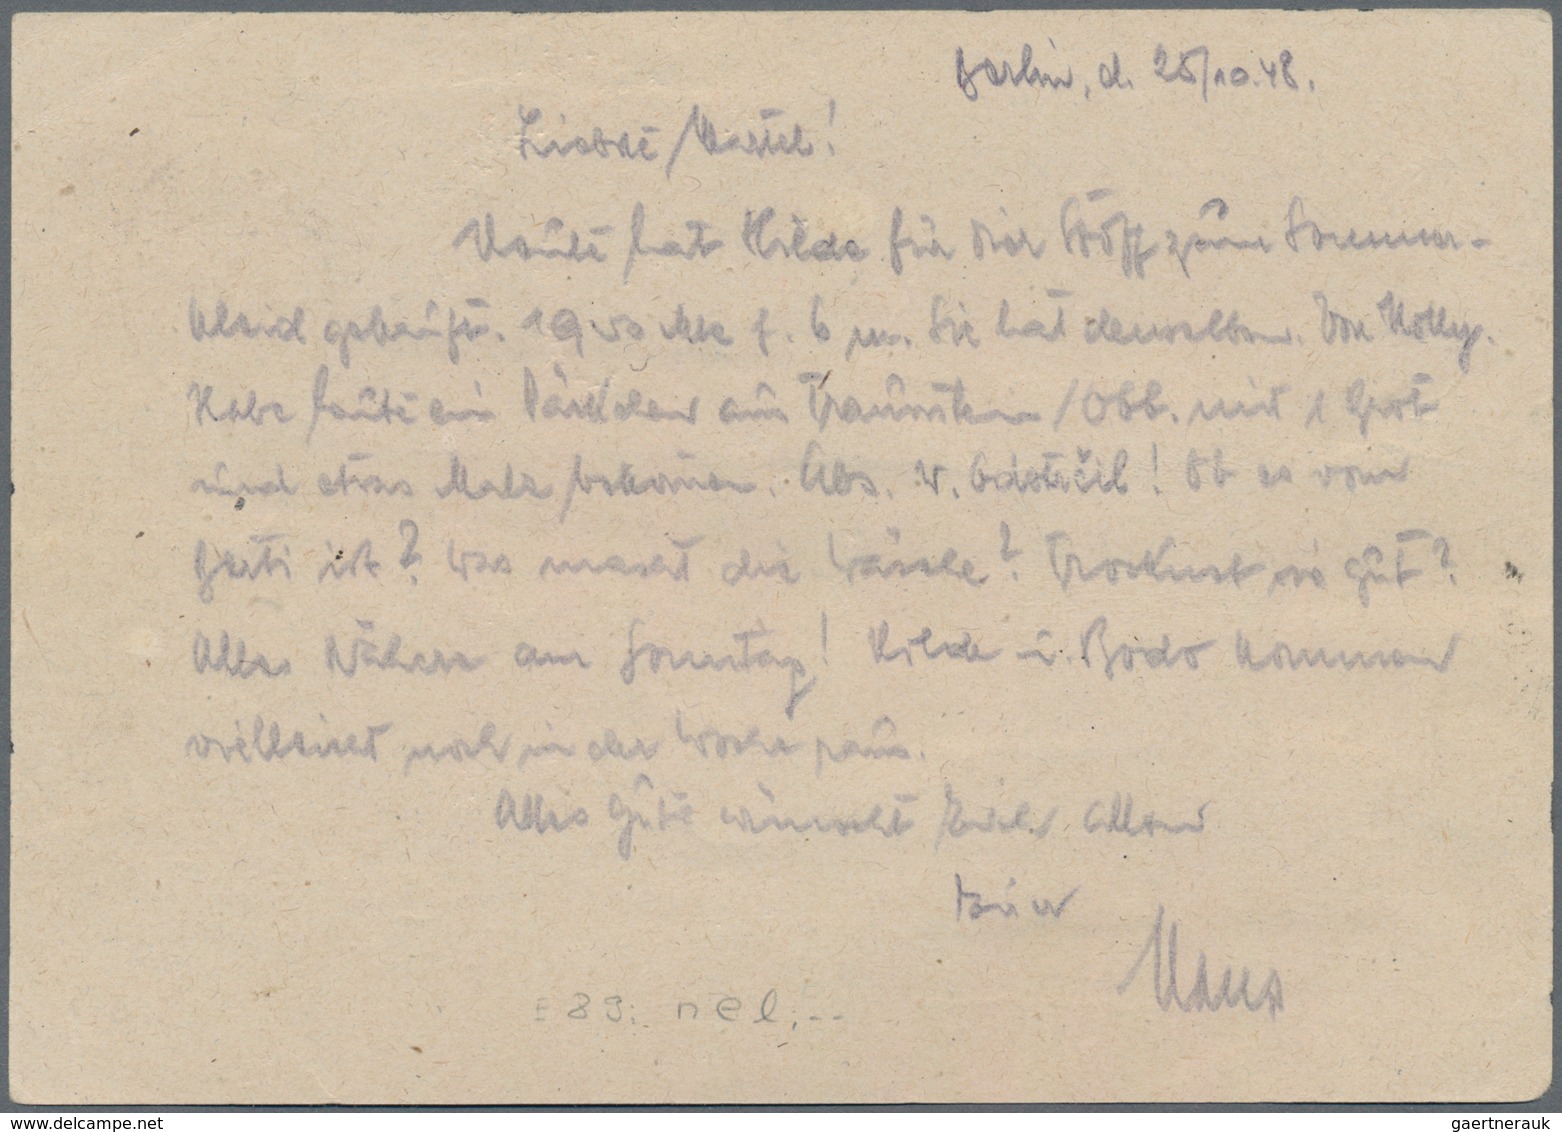 Berlin, d. 25/10.48.
Liebste Mastel!
Heute hat Hilde für Dich Stoff zum Sommer-
kleid gekauft. 19 Mk f. 6 m. Sie hat denselben. Von
Habe heute ein Päckchen aus Traunstein/Obb. mit 1 Brot
und etwas Malz bekommen. Abs. v. Ob es vom
Berti ist? Was macht die Wäsche? Trocknet sie gut?
Alles Nähere am Sonntag! Hilde u. Bodo kommen
vielleicht noch in der Woche raus.
Alles Gute wünscht Euch Allen
Euer
Hans
89; nel,--
gaertnerauk @ delcampe.net